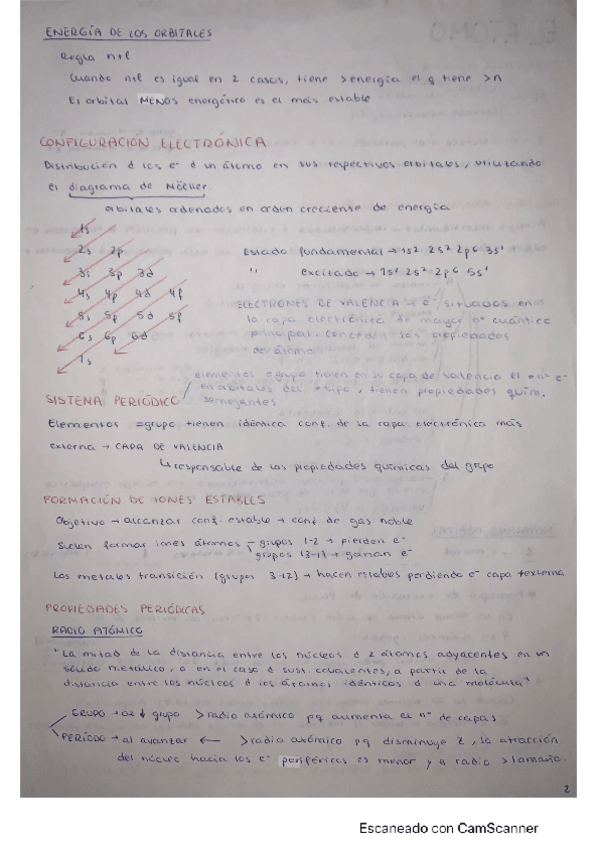 ENERGÍA DE LOS ORBITALES
Regla n+l
Cuando n+l es igual en 2 casos, tiene >energía el q tiene >n
El orbital MENOS energético es el más estable
CONFIGURACIÓN ELECTRÓNICA
Distribución d los e⁻ d un átomo en sus respectivos orbitales, utilizando
el diagrama de Möeller.
orbitales ordenados en orden creciente de energía
1s
2s 2p
3s 3p 3d
4s 4p 4d 4f
5s 5p 5d 5f
6s 6p 6d
7s
Estado fundamental → 1s² 2s² 2p6 3s¹
" excitado → 1s² 2s² 2p6 5s¹
ELECTRONES DE VALENCIA → e⁻ situados en
la capa electrónica de mayor nº cuántico
principal. Controlan las propiedades
del átomo
elementos =grupo tienen en su capa de valencia el =nº e⁻
en orbitales del =tipo, tienen propiedades quím.
semejantes
SISTEMA PERIÓDICO
Elementos =grupo tienen idéntica conf. de la capa electrónica más
externa → CAPA DE VALENCIA
↳ responsable de las propiedades químicas del grupo
FORMACIÓN DE IONES ESTABLES
Objetivo → alcanzar conf. estable → conf de gas noble
Suelen formar iones átomos - grupos 1-2 → pierden e⁻
grupos 13-17 → ganan e⁻
Los metales transición (grupos 3-12) → hacen estables perdiendo e⁻ capa +externa
PROPIEDADES PERIÓDICAS
RADIO ATÓMICO
"La mitad de la distancia entre los núcleos d 2 átomos adyacentes en un
sólido metálico, o en el caso d sust. covalentes, a partir de la
distancia entre los núcleos d los átomos idénticos d una molécula"
GRUPO → al ↓ grupo >radio atómico pq aumenta el nº de capas
PERÍODO → al avanzar ← >radio atómico pq disminuye Z, la atracción
del núcleo hacia los e⁻ periféricos es menor y el radio >tamaño.
2
Escaneado con CamScanner